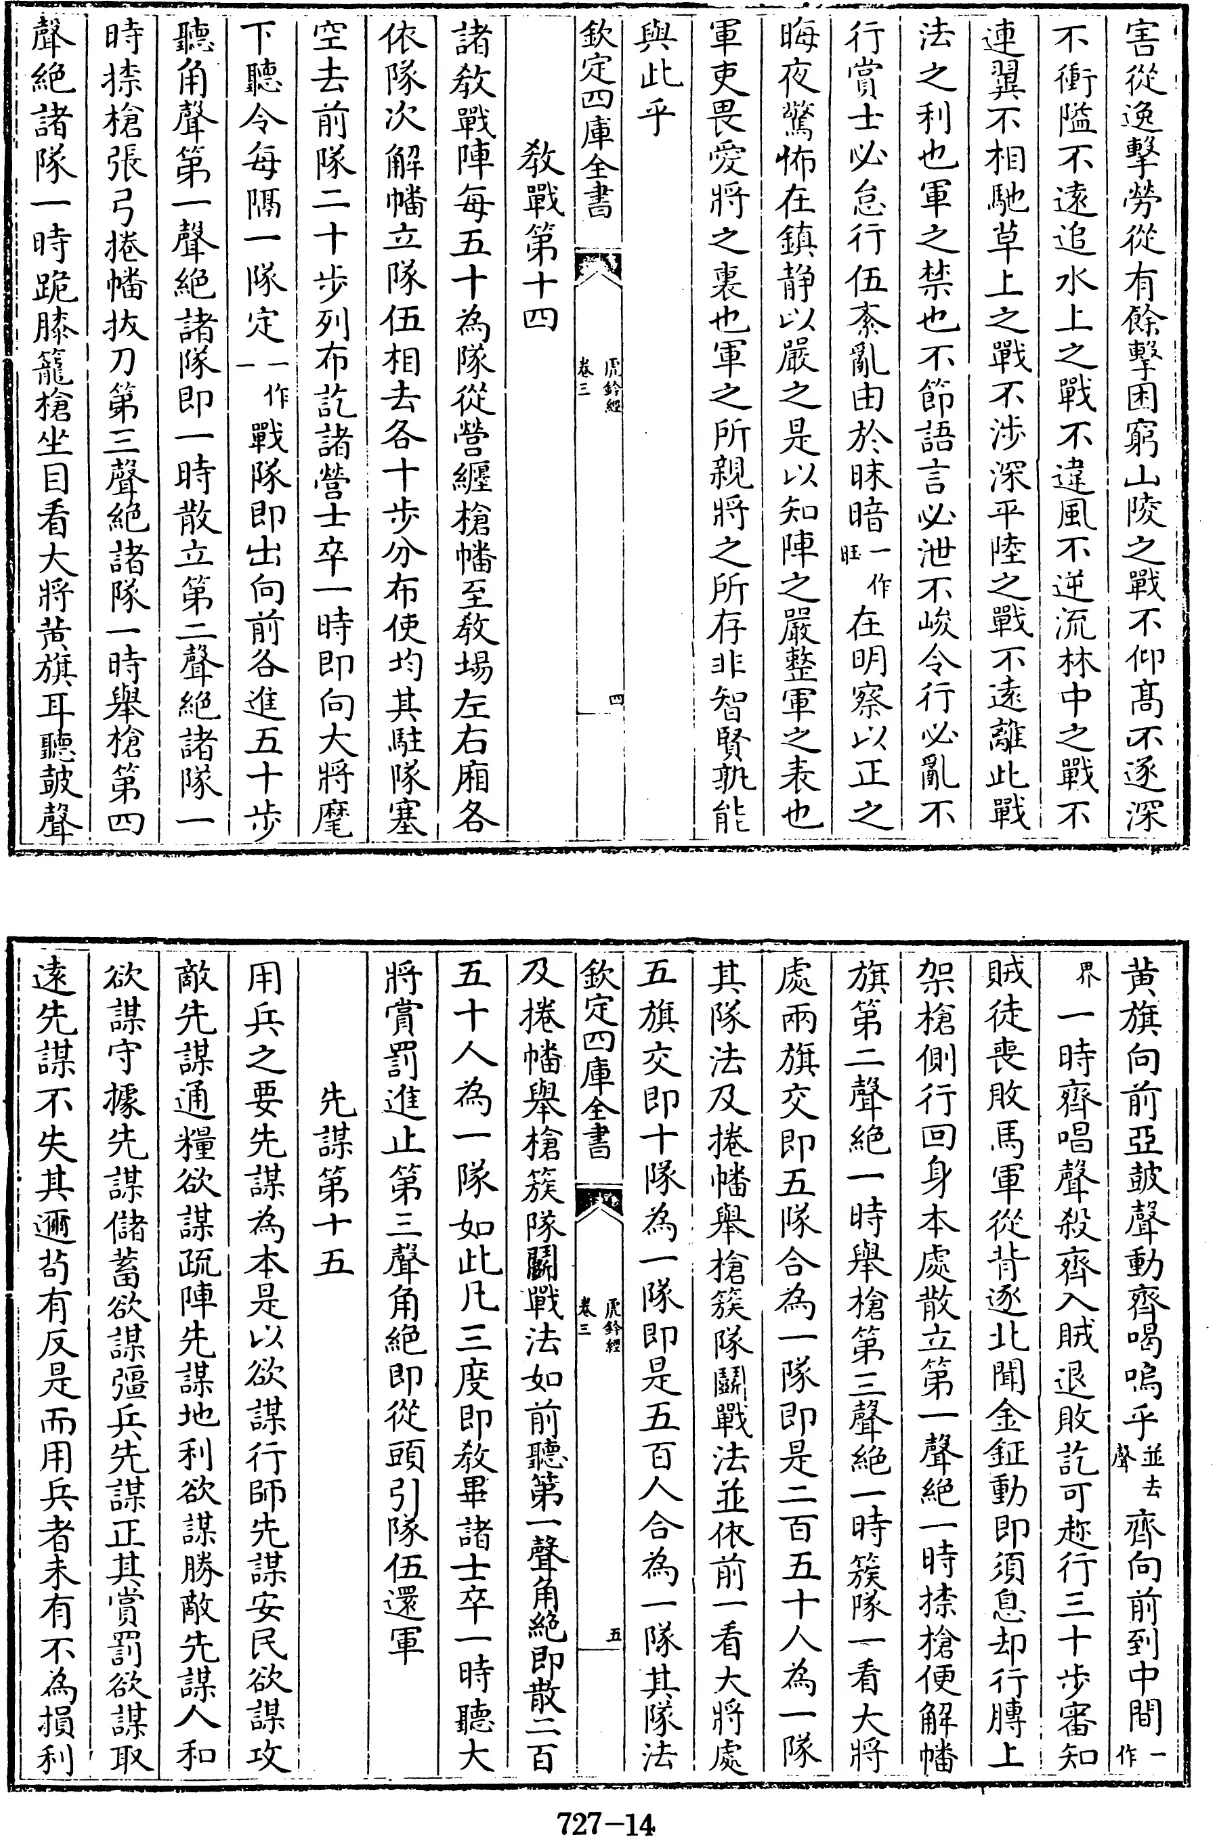 害從逸擊勞從有餘擊困窮山陵之戰不仰髙不逐深
不衝隘不遠追水上之戰不違風不逆流林中之戰不
連翼不相馳草上之戰不涉深平陸之戰不遠離此戰
法之利也軍之禁也不節語言必泄不峻令行必亂不
行賞士必怠行伍紊亂由於昧暗一作旺在明察以正之
晦夜驚怖在鎮靜以嚴之是以知陣之嚴整軍之表也
軍吏畏愛將之裏也軍之所親將之所存非智賢孰能
與此乎
欽定四庫全書
虎鈐經
卷三
四
敎戰第十四
諸敎戰陣每五十為隊從營纒槍幡至敎場左右廂各
依隊次解幡立隊伍相去各十步分布使均其駐隊塞
空去前隊二十步列布訖諸營士卒一時即向大將麾
下聽令每隔一隊定一作一戰隊即出向前各進五十步
聽角聲第一聲絶諸隊即一時散立第二聲絶諸隊一
時捺槍張弓捲幡拔刀第三聲絶諸隊一時舉槍第四
聲絶諸隊一時跪膝籠槍坐目看大將黄旗耳聽鼓聲
黄旗向前亞鼓聲動齊喝嗚乎並去聲齊向前到中間一作
界一時齊唱聲殺齊入賊退敗訖可趂行三十步審知
賊徒喪敗馬軍從背逐北聞金鉦動即須息却行膊上
架槍側行回身本處散立第一聲絶一時捺槍便解幡
旗第二聲絶一時舉槍第三聲絶一時簇隊一看大將
處兩旗交即五隊合為一隊即是二百五十人為一隊
其隊法及捲幡舉槍簇隊鬭戰法並依前一看大將處
五旗交即十隊為一隊即是五百人合為一隊其隊法
欽定四庫全書
虎鈐經
卷三
五
及捲幡舉槍簇隊鬭戰法如前聽第一聲角絶即散二百
五十人為一隊如此凡三度即敎畢諸士卒一時聽大
將賞罰進止第三聲角絶即從頭引隊伍還軍
先謀第十五
用兵之要先謀為本是以欲謀行師先謀安民欲謀攻
敵先謀通糧欲謀疏陣先謀地利欲謀勝敵先謀人和
欲謀守據先謀儲蓄欲謀彊兵先謀正其賞罰欲謀取
遠先謀不失其邇茍有反是而用兵者未有不為損利
727-14